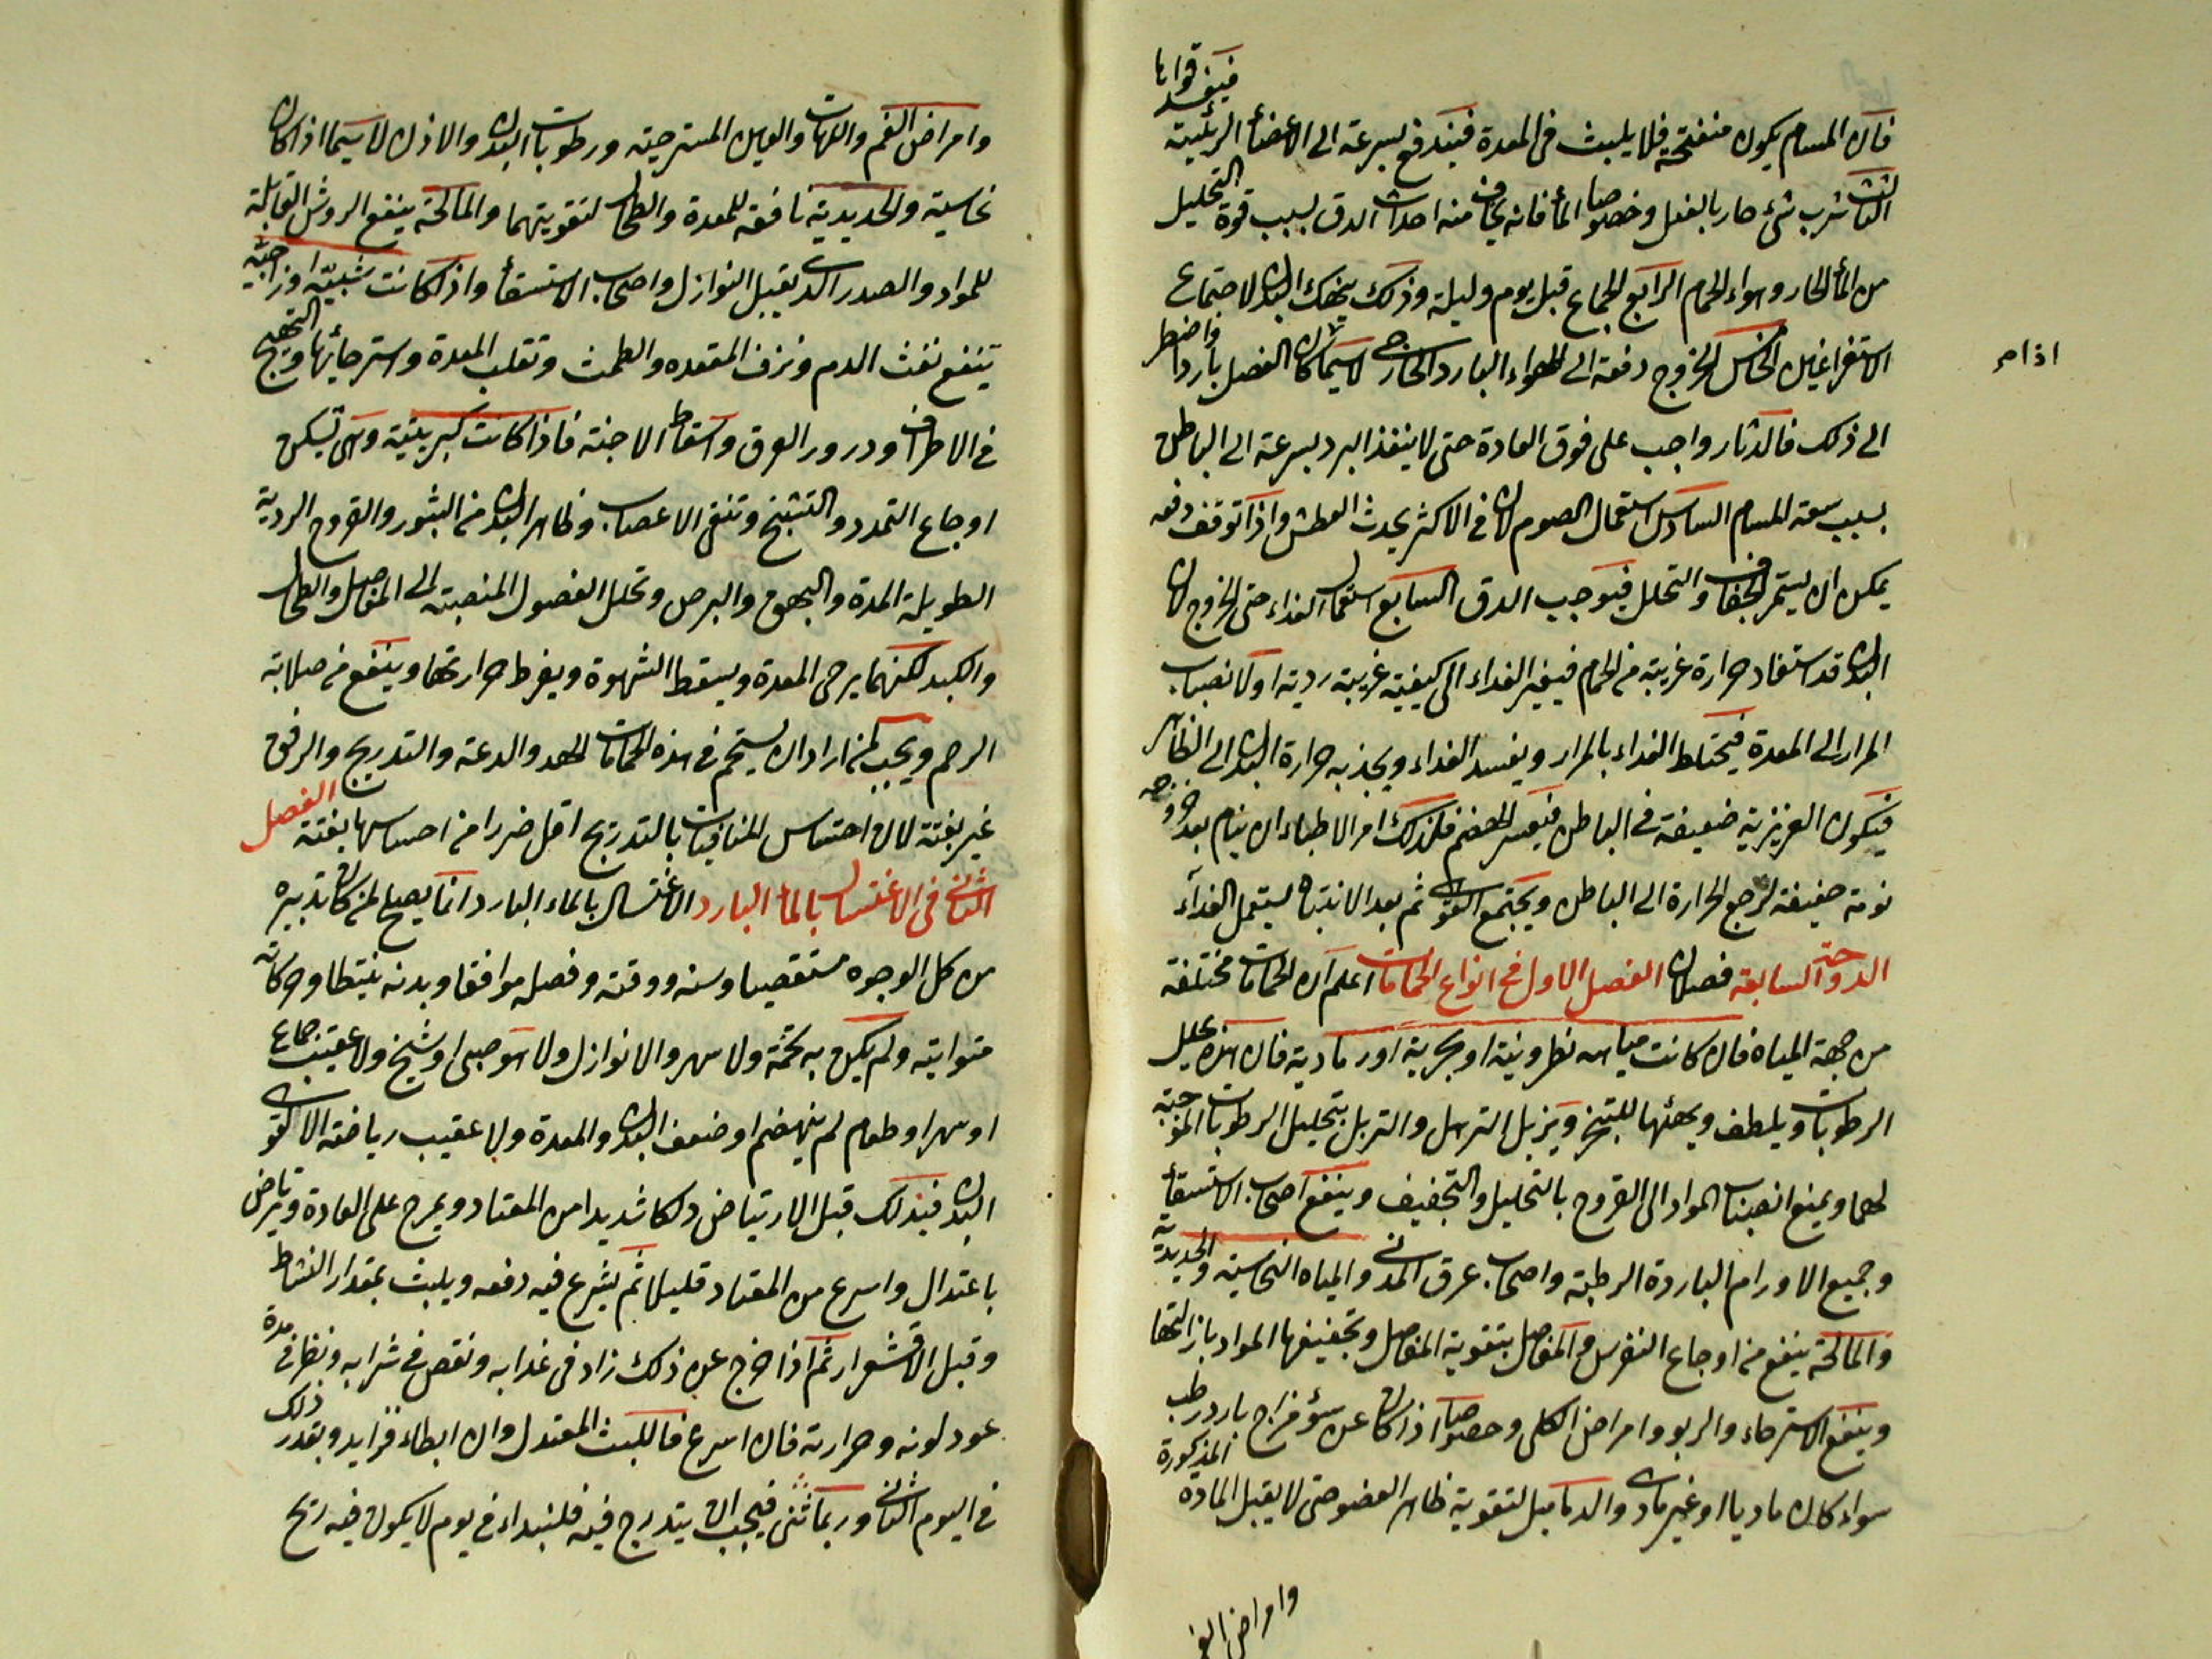 فينفذ قواها
فان المسام يكون منفتحة فلا يلبث فى المعدة فيندفع بسرعة الى الاعضأ الرئيسة
الثالث شرب شئ حار بالفعل وخصوصا المأ فانه يخاف منه احداث الدق بسبب قوة التحليل
من المأ الحار وهواء الحمام الرابع الجماع قبل يوم وليلة وذلك ينهك البدن لاجتماع
الاستفراغين الخامس الخروج دفعة الى الهواء البارد الخارجى لا سيما ان كان الفصل باردا واضطر
اذا م
الى ذلك فالدثار واجب على فوق العادة حتى لا ينفذ البرد بسرعة الى الباطن
بسبب سعة المسام السادس استعمال الصوم لانه فى الاكثر يحدث العطش واذا توقف دفعه
يمكن ان يستمر الجفاف والتحلل فيوجب الدق السابع استعمال الغذاء حين الخروج لان
البدن قد استفاد حرارة غريبة من الحمام فيغير الغذاء الى كيفية غريبة ردية او لانصباب
المرار الى المعدة فيختلط الغذاء بالمرار ويفسد الغذاء ويجذبه حرارة البدن الى الظاهر
فيكون الغريزية ضعيفة فى الباطن فيعسر الهضم فلذلك امر الاطباء ان ينام بعد خروجه
نومة خفيفة لرجع الحرارة الى الباطن ويجتمع القوى ثم بعد الانتباه يستعمل الغذآء
الدوحة السابعة فصلان الفصل الاول فى انواع الحمامات اعلم ان الحمامات مختلفة
من جهة المياه فان كانت مياهه نطرونية او بحرية او رمادية فان هذه يحلل
الرطوبات ويلطف ويهيئها للتبخر ويزيل الترهل والتربل بتحليل الرطوبات الموجبة
لهما ويمنع انصباب المواد الى القروح بالتحليل والتجفيف وينفع اصحاب الاستسقأ
وجميع الاورام الباردة الرطبة واصحاب عرق المدنى والمياه النحاسية والحديدية
والمالحة ينفع من اوجاع النقرس والمفاصل بتقوية المفاصل وتجفيفها المواد بازالتها
وينفع الاسترخاء والربو وامراض الكلى وخصوصا اذا كان عن سؤ مزاج بارد رطب
سواء كان ماديا او غير مادى والدماميل لتقوية ظاهر العضو حتى لا يقبل المادة المذكورة
وامراض الفم
وامراض الفم واللهات والعين المسترخية ورطوبات البدن والاذن لا سيما اذا كان
نحاسية والحديدية نافعة للمعدة والطحال لتقويتهما والمالحة ينفع الرؤس القابلة
للمواد والصدر الذى يقبل النوازل واصحاب الاستسقأ واذا كانت شبية او زاجية
تنفع نفث الدم ونزف المقعده والطمث وتقلب المعدة واسترخائها والتهيج
فى الاطراف ودرور العرق واسقاط الاجنة فاذا كانت كبريتية وهى تسكن
اوجاع التمدد والتشنج وتنقى الاعصاب وظاهر البدن من البثور والقروح الردية
الطويلة المدة والبهق والبرص وتحلل الفضول المنصبة الى المفاصل والطحال
والكبد لكنها يرخى المعدة ويسقط الشهوة ويفرط حرارتها وينفع من صلابة
الرحم ويجب لمن اراد ان يستحم فى هذه الحمامات الهدو والدعة والتدريج والرفق
غير بغتة لان احتباس المنافيات بالتدريج اقل ضررا من احساسها بغتة الفصل
الثانى فى الاغتسال بالمأ البارد الاغتسال بالماء البارد انما يصلح لمن كان تدبيره
من كل الوجوه مستقصيا وسنه ووقته وفصله موافقا وبدنه نشيطا وحركاته
متواتية ولم يكن به تخمة ولا سهر ولا نوازل ولا هو صبى او شيخ ولا عقيب جماع
او سهر او طعام لم ينهضم او ضعف البدن والمعدة ولا عقيب رياضة الا لقوى
البدن فيدلك قبل الارتياض دلكا شديدا من المعتاد ويمرخ على العادة ويرتاض
باعتدال واسرع من المعتاد قليلا ثم يشرع فيه دفعه ويلبث بمقدار النشاط
وقبل الاقشعرار ثم اذا خرج عن ذلك زاد فى غذائه ونقص فى شرابه ونظر فى مدة
عود لونه وحرارته فان اسرع فاللبث المعتدل وان ابطاء فزايد وبقدر ذلك
فى اليوم الثانى وربما ثنى فيجب ان يتدرج فيه فليبداء فى يوم لا يكون فيه ريح